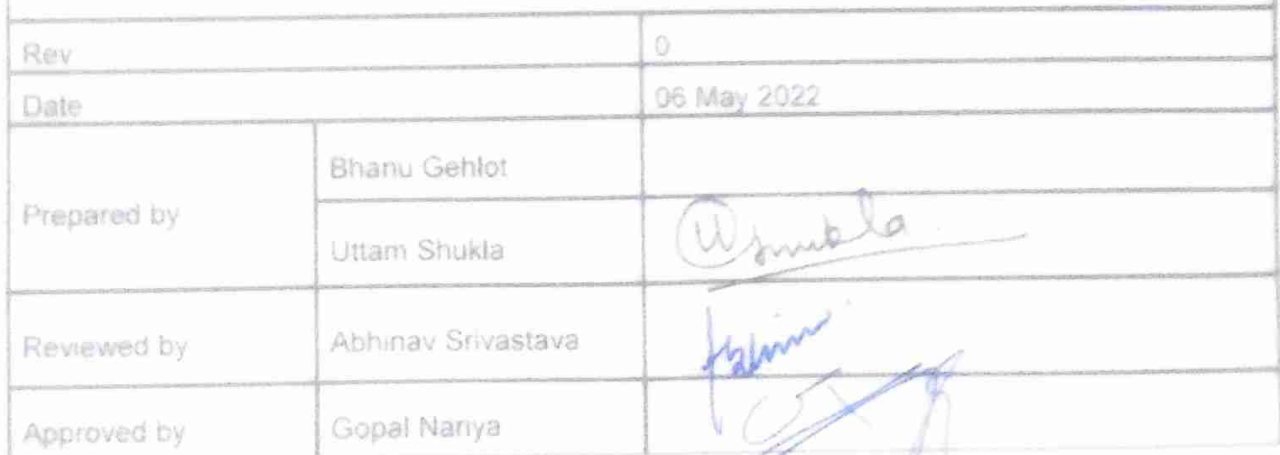 Rev 0
Date 06 May 2022
Prepared by
Bhanu Gehlot
Uttam Shukla Ushukla
Reviewed by Abhinav Srivastava Abhinav
Approved by Gopal Nariya